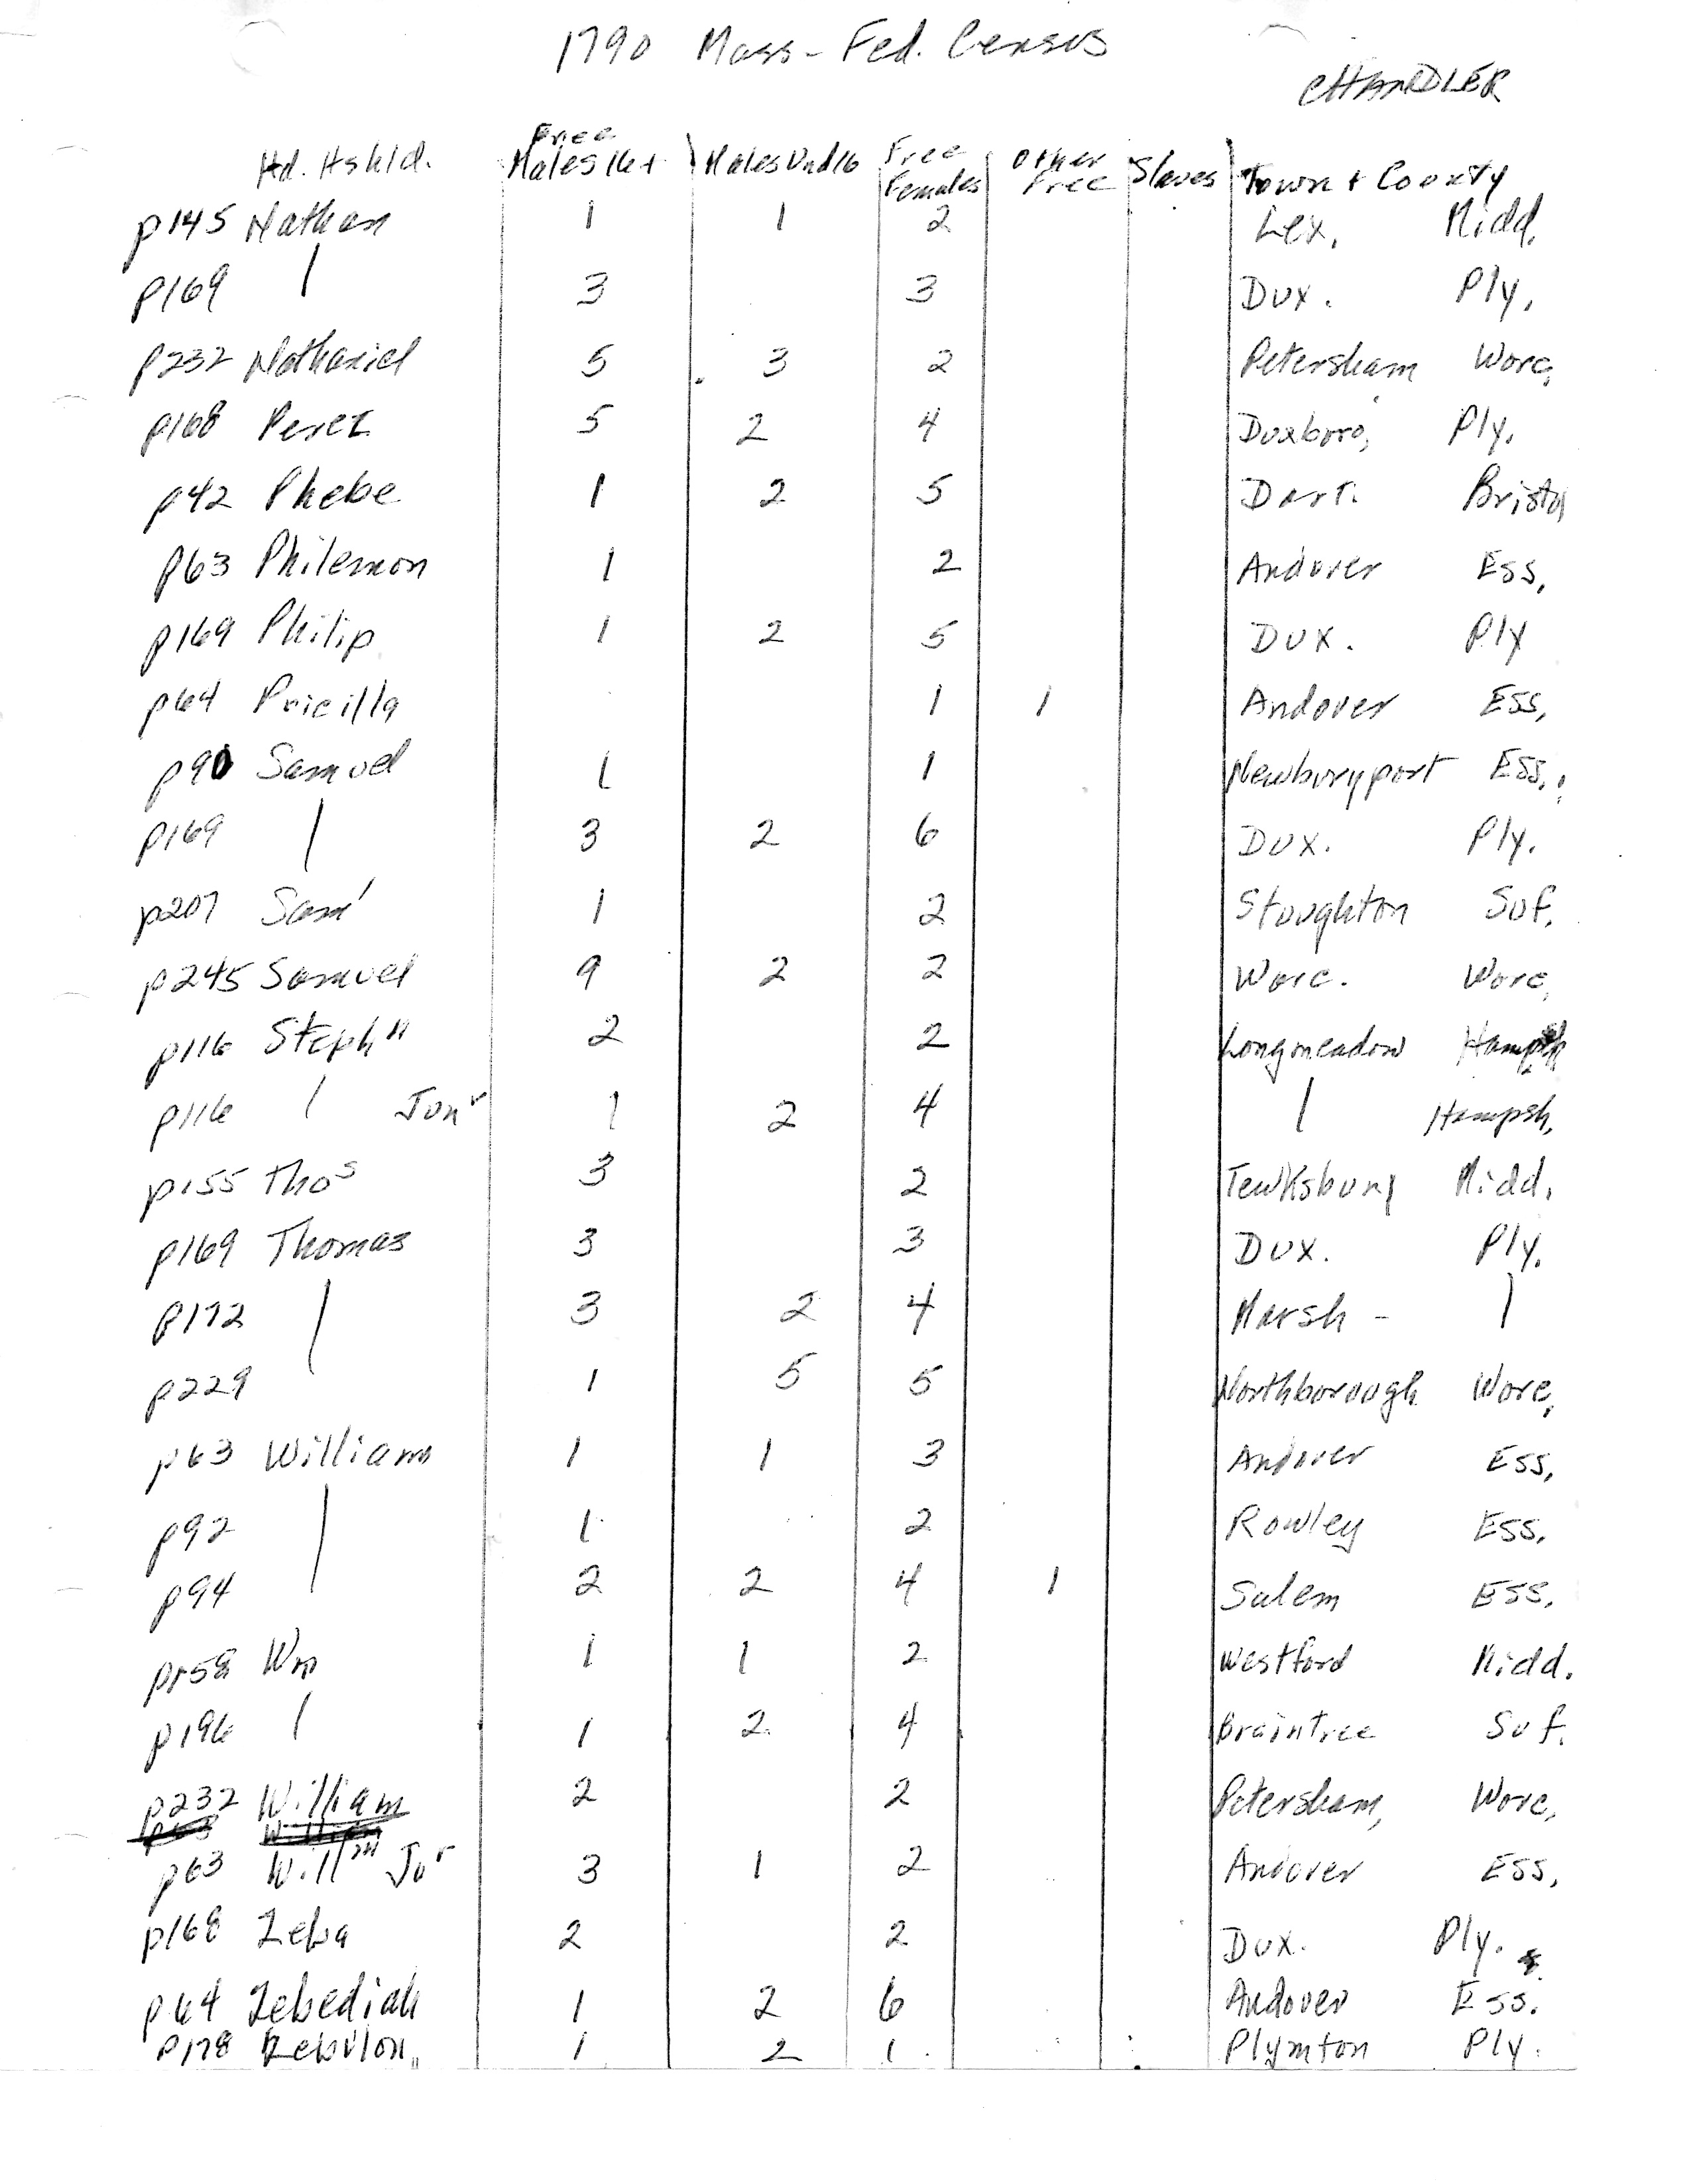 1790 Mass - Fed. Census
CHANDLER
Hd. Hshld. Free Males 16+ Males Und 16 Free Females Other Free Slaves Town + County
p145 Nathan 1 1 2 Lex. Midd.
p169 3 3 Dux. Ply.
p232 Nathaniel 5 3 2 Petersham Worc.
p168 Perez 5 2 4 Duxboro, Ply.
p42 Phebe 1 2 5 Dart. Bristol
p63 Philemon 1 2 Andover Ess.
p169 Philip 1 2 5 Dux. Ply
p64 Pricilla 1 1 Andover Ess.
p90 Samuel 1 1 Newburyport Ess.
p169 3 2 6 Dux. Ply.
p207 Saml 1 2 Stoughton Suf.
p245 Samuel 9 2 2 Worc. Worc.
p116 Stephn 2 2 Longmeadow Hampsh
p116 Junr 1 2 4 Hampsh.
p155 Thos 3 2 Tewksbury Midd.
p169 Thomas 3 3 Dux. Ply.
p172 3 2 4 Marsh -
p229 1 5 5 Northborough Worc.
p63 William 1 1 3 Andover Ess.
p92 1 2 Rowley Ess.
p94 2 2 4 1 Salem Ess.
p158 Wm 1 1 2 Westford Midd.
p196 1 2 4 Braintree Suf.
p232 William 2 2 Petersham, Worc.
p63 William
p63 Willm Jur 3 1 2 Andover Ess.
p168 Zeba 2 2 Dux. Ply.
p64 Zebediah 1 2 6 Andover Ess.
p178 Zebulon 1 2 1 Plymton Ply.